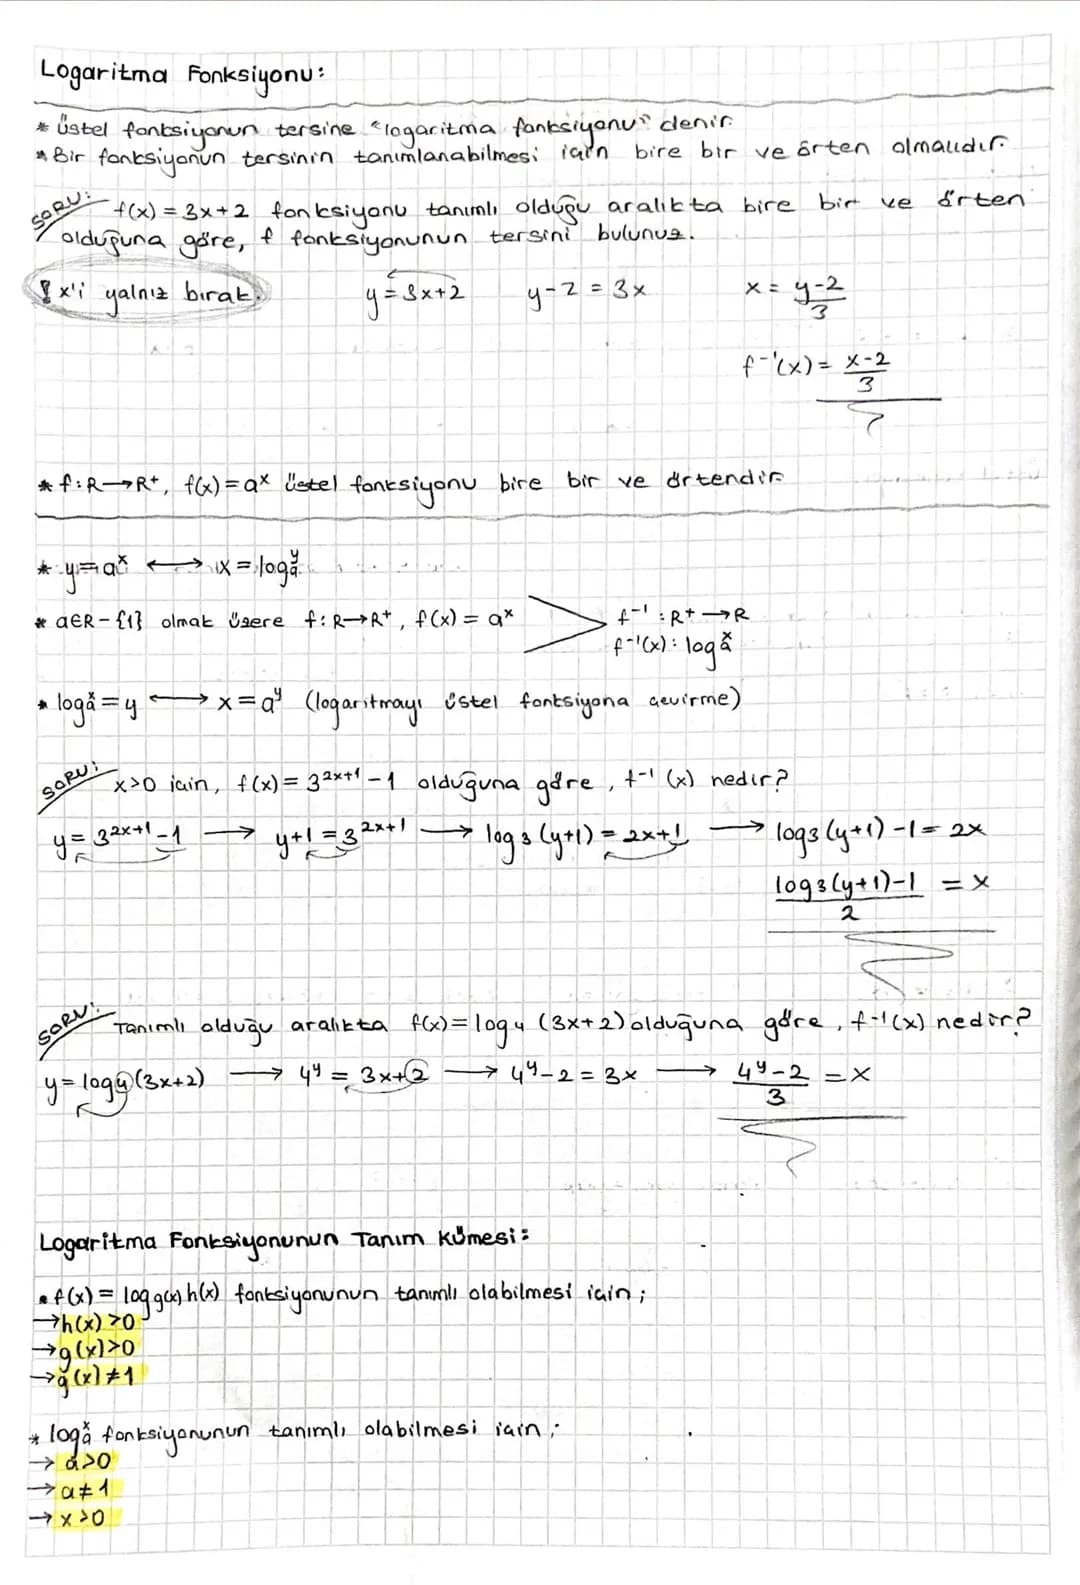 Logaritma Fonksiyonu:
* Üstel fonksiyonun tersine "logaritma fonksiyonu" denir.
* Bir fonksiyonun tersinin tanımlanabilmesi için bire bir ve örten olmalıdır.
SORU: f(x) = 3x+2 fonksiyonu tanımlı olduğu aralıkta bire bir ve örten
olduğuna göre, f fonksiyonunun tersini bulunuz.
! x'i yalnız bırak. y = 3x+2 y-2 = 3x x = y-2/3
f⁻¹(x) = x-2/3
* f:R→R⁺, f(x) = aˣ üstel fonksiyonu bire bir ve örtendir.
* y = aˣ ⟷ x = logₐʸ
* a∈R-{1} olmak üzere f:R→R⁺, f(x) = aˣ > f⁻¹:R⁺→R
f⁻¹(x): logₐˣ
* logₐˣ = y ⟷ x = aʸ (logaritmayı üstel fonksiyona çevirme)
SORU: x>0 için, f(x) = 3²ˣ⁺¹ - 1 olduğuna göre, f⁻¹(x) nedir?
y = 3²ˣ⁺¹ - 1 → y+1 = 3²ˣ⁺¹ → log₃(y+1) = 2x+1 → log₃(y+1) - 1 = 2x
log₃(y+1)-1/2 = x
SORU: Tanımlı olduğu aralıkta f(x) = log₄(3x+2) olduğuna göre, f⁻¹(x) nedir?
y = log₄(3x+2) → 4ʸ = 3x+2 → 4ʸ-2 = 3x → 4ʸ-2/3 = x
Logaritma Fonksiyonunun Tanım Kümesi:
* f(x) = log g(x) h(x) fonksiyonunun tanımlı olabilmesi için;
→ h(x) > 0
→ g(x) > 0
→ g(x) ≠ 1
* logₐˣ fonksiyonunun tanımlı olabilmesi için;
→ a > 0
→ a ≠ 1
→ x > 0